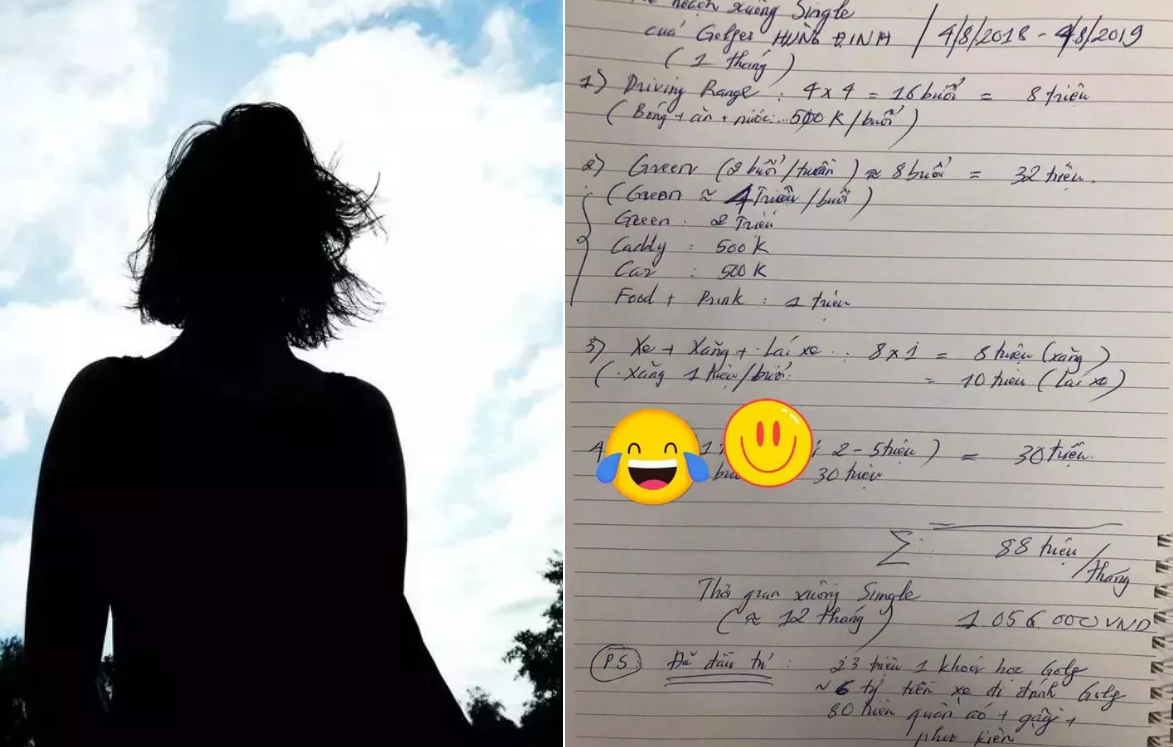 hoạch xuống Single
của Golfer HÙNG ĐINH / 4/8/2018 - 4/8/2019
( 1 tháng )
1) Driving Range : 4 x 4 = 16 buổi = 8 triệu
( Bóng + ăn + nước : 500 K / buổi )
2) Green (2 buổi / tuần) ≈ 8 buổi = 32 triệu.
( Green ≈ 4 Triệu / buổi )
Green : 2 Triệu
Caddy : 500 K
Car : 500 K
Food + Drink : 1 triệu
3) Xe + Xăng + Lái xe : 8 x 1 = 8 triệu (xăng)
( Xăng 1 triệu / buổi = 10 triệu (lái xe)
4 2 - 5 triệu ) = 30 triệu.
30 triệu
Σ : 88 triệu / tháng
Thời gian xuống Single
( ≈ 12 tháng ) 1.056.000 VND
PS Đã đầu tư : 23 triệu 1 khoá học Golf
~ 6 tỷ tiền xe đi đánh Golf
80 triệu quần áo + gậy +
phụ kiện